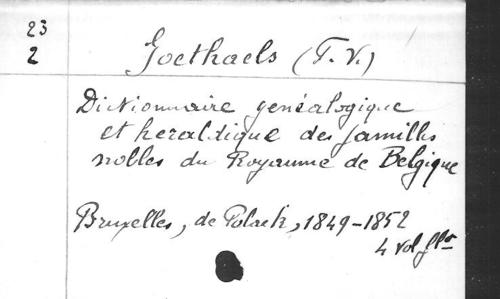 23
2
Goethaels (F. V.)
Dictionnaire genéalogique
et heraldique des familles
nobles du Royaume de Belgique
Bruxelles, de Polack, 1849-1852
4 vol